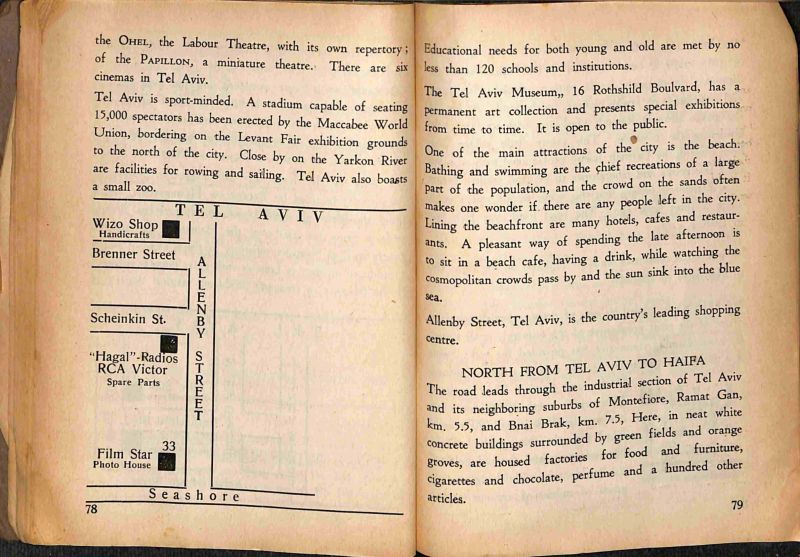 the OHEL, the Labour Theatre, with its own repertory;
of the PAPILLON, a miniature theatre. There are six
cinemas in Tel Aviv.
Tel Aviv is sport-minded. A stadium capable of seating
15,000 spectators has been erected by the Maccabee World
Union, bordering on the Levant Fair exhibition grounds
to the north of the city. Close by on the Yarkon River
are facilities for rowing and sailing. Tel Aviv also boasts
a small zoo.
TEL AVIV
Wizo Shop
Handicrafts
Brenner Street
ALLENBY STREET
Scheinkin St.
"Hagal"-Radios
RCA Victor
Spare Parts
33
Film Star
Photo House
Seashore
78
Educational needs for both young and old are met by no
less than 120 schools and institutions.
The Tel Aviv Museum,, 16 Rothshild Boulvard, has a
permanent art collection and presents special exhibitions
from time to time. It is open to the public.
One of the main attractions of the city is the beach.
Bathing and swimming are the chief recreations of a large
part of the population, and the crowd on the sands often
makes one wonder if there are any people left in the city.
Lining the beachfront are many hotels, cafes and restaur-
ants. A pleasant way of spending the late afternoon is
to sit in a beach cafe, having a drink, while watching the
cosmopolitan crowds pass by and the sun sink into the blue
sea.
Allenby Street, Tel Aviv, is the country's leading shopping
centre.
NORTH FROM TEL AVIV TO HAIFA
The road leads through the industrial section of Tel Aviv
and its neighboring suburbs of Montefiore, Ramat Gan,
km. 5.5, and Bnai Brak, km. 7.5, Here, in neat white
concrete buildings surrounded by green fields and orange
groves, are housed factories for food and furniture,
cigarettes and chocolate, perfume and a hundred other
articles.
79